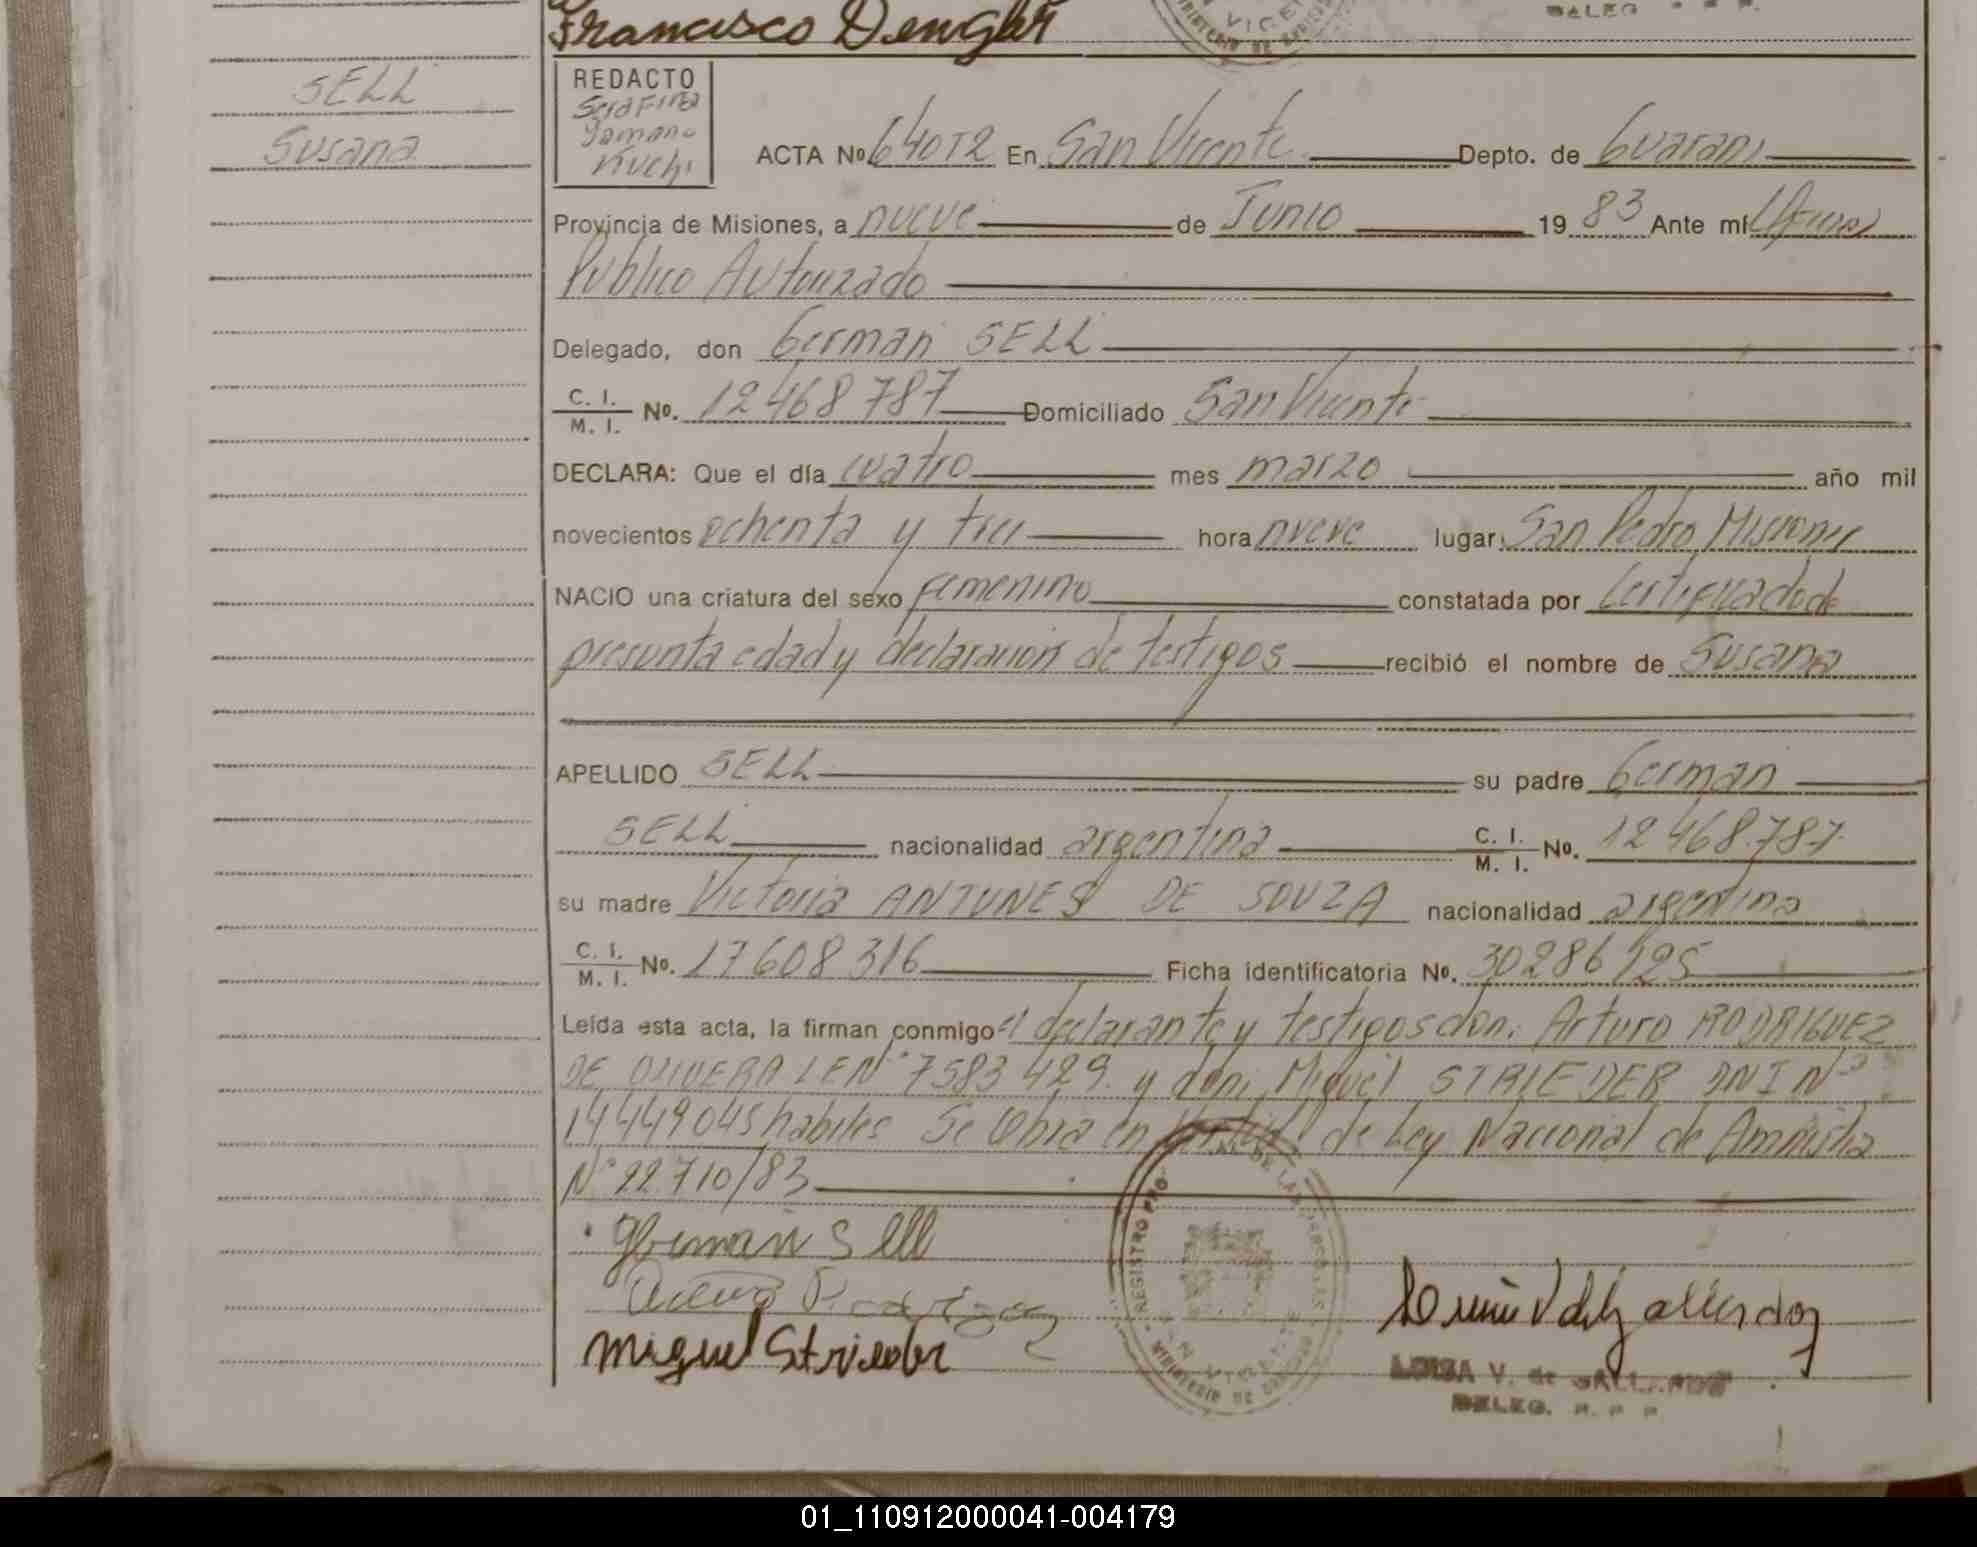 Francisco Dengler
DELEG. R. P. P.
SELL
Susana
REDACTO
Serafina
Yamano
Kuchi
ACTA No 640T2 En San Vicente Depto. de Guarani
Provincia de Misiones, a nueve de Junio 1983 Ante mí
Publico Autorizado
Delegado, don German SELL
C. I.
M. I. No. 12468787 Domiciliado San Vicente
DECLARA: Que el día cuatro mes marzo año mil
novecientos ochenta y tres hora nueve lugar San Pedro Misiones
NACIO una criatura del sexo femenino constatada por Certificado de
presunta edad y declaracion de testigos recibió el nombre de Susana
APELLIDO SELL su padre German
SELL nacionalidad argentina C. I.
M. I. No. 12468.787
su madre Victoria ANTUNES DE SOUZA nacionalidad argentina
C. I.
M. I. No. 17608316 Ficha identificatoria No. 30286125
Leída esta acta, la firman conmigo el declarante y testigos don: Arturo RODRIGUEZ
DE OLIVERA LE Nº 7583429. y don: Miguel STRIEDER DNI Nº
14449045 habiles Se Obra en Virtud de Ley Nacional de Amnistia
Nº 22.710/83
German Sell
Miguel Strieder
REGISTRO PRO. DE LAS PERSONAS
SAN VICENTE
MINISTERIO DE GOBIERNO
LUISA V. de GALLARDO
DELEG. R. P. P.
01_110912000041-004179